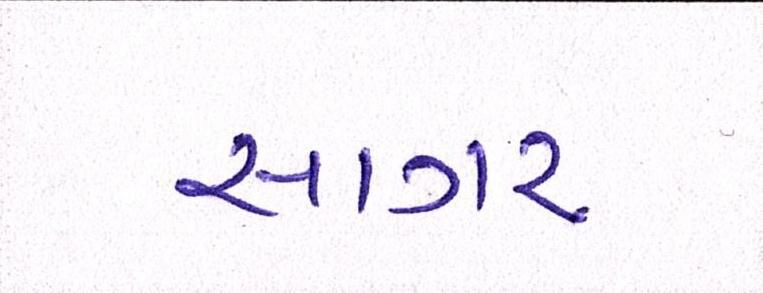 સાગર